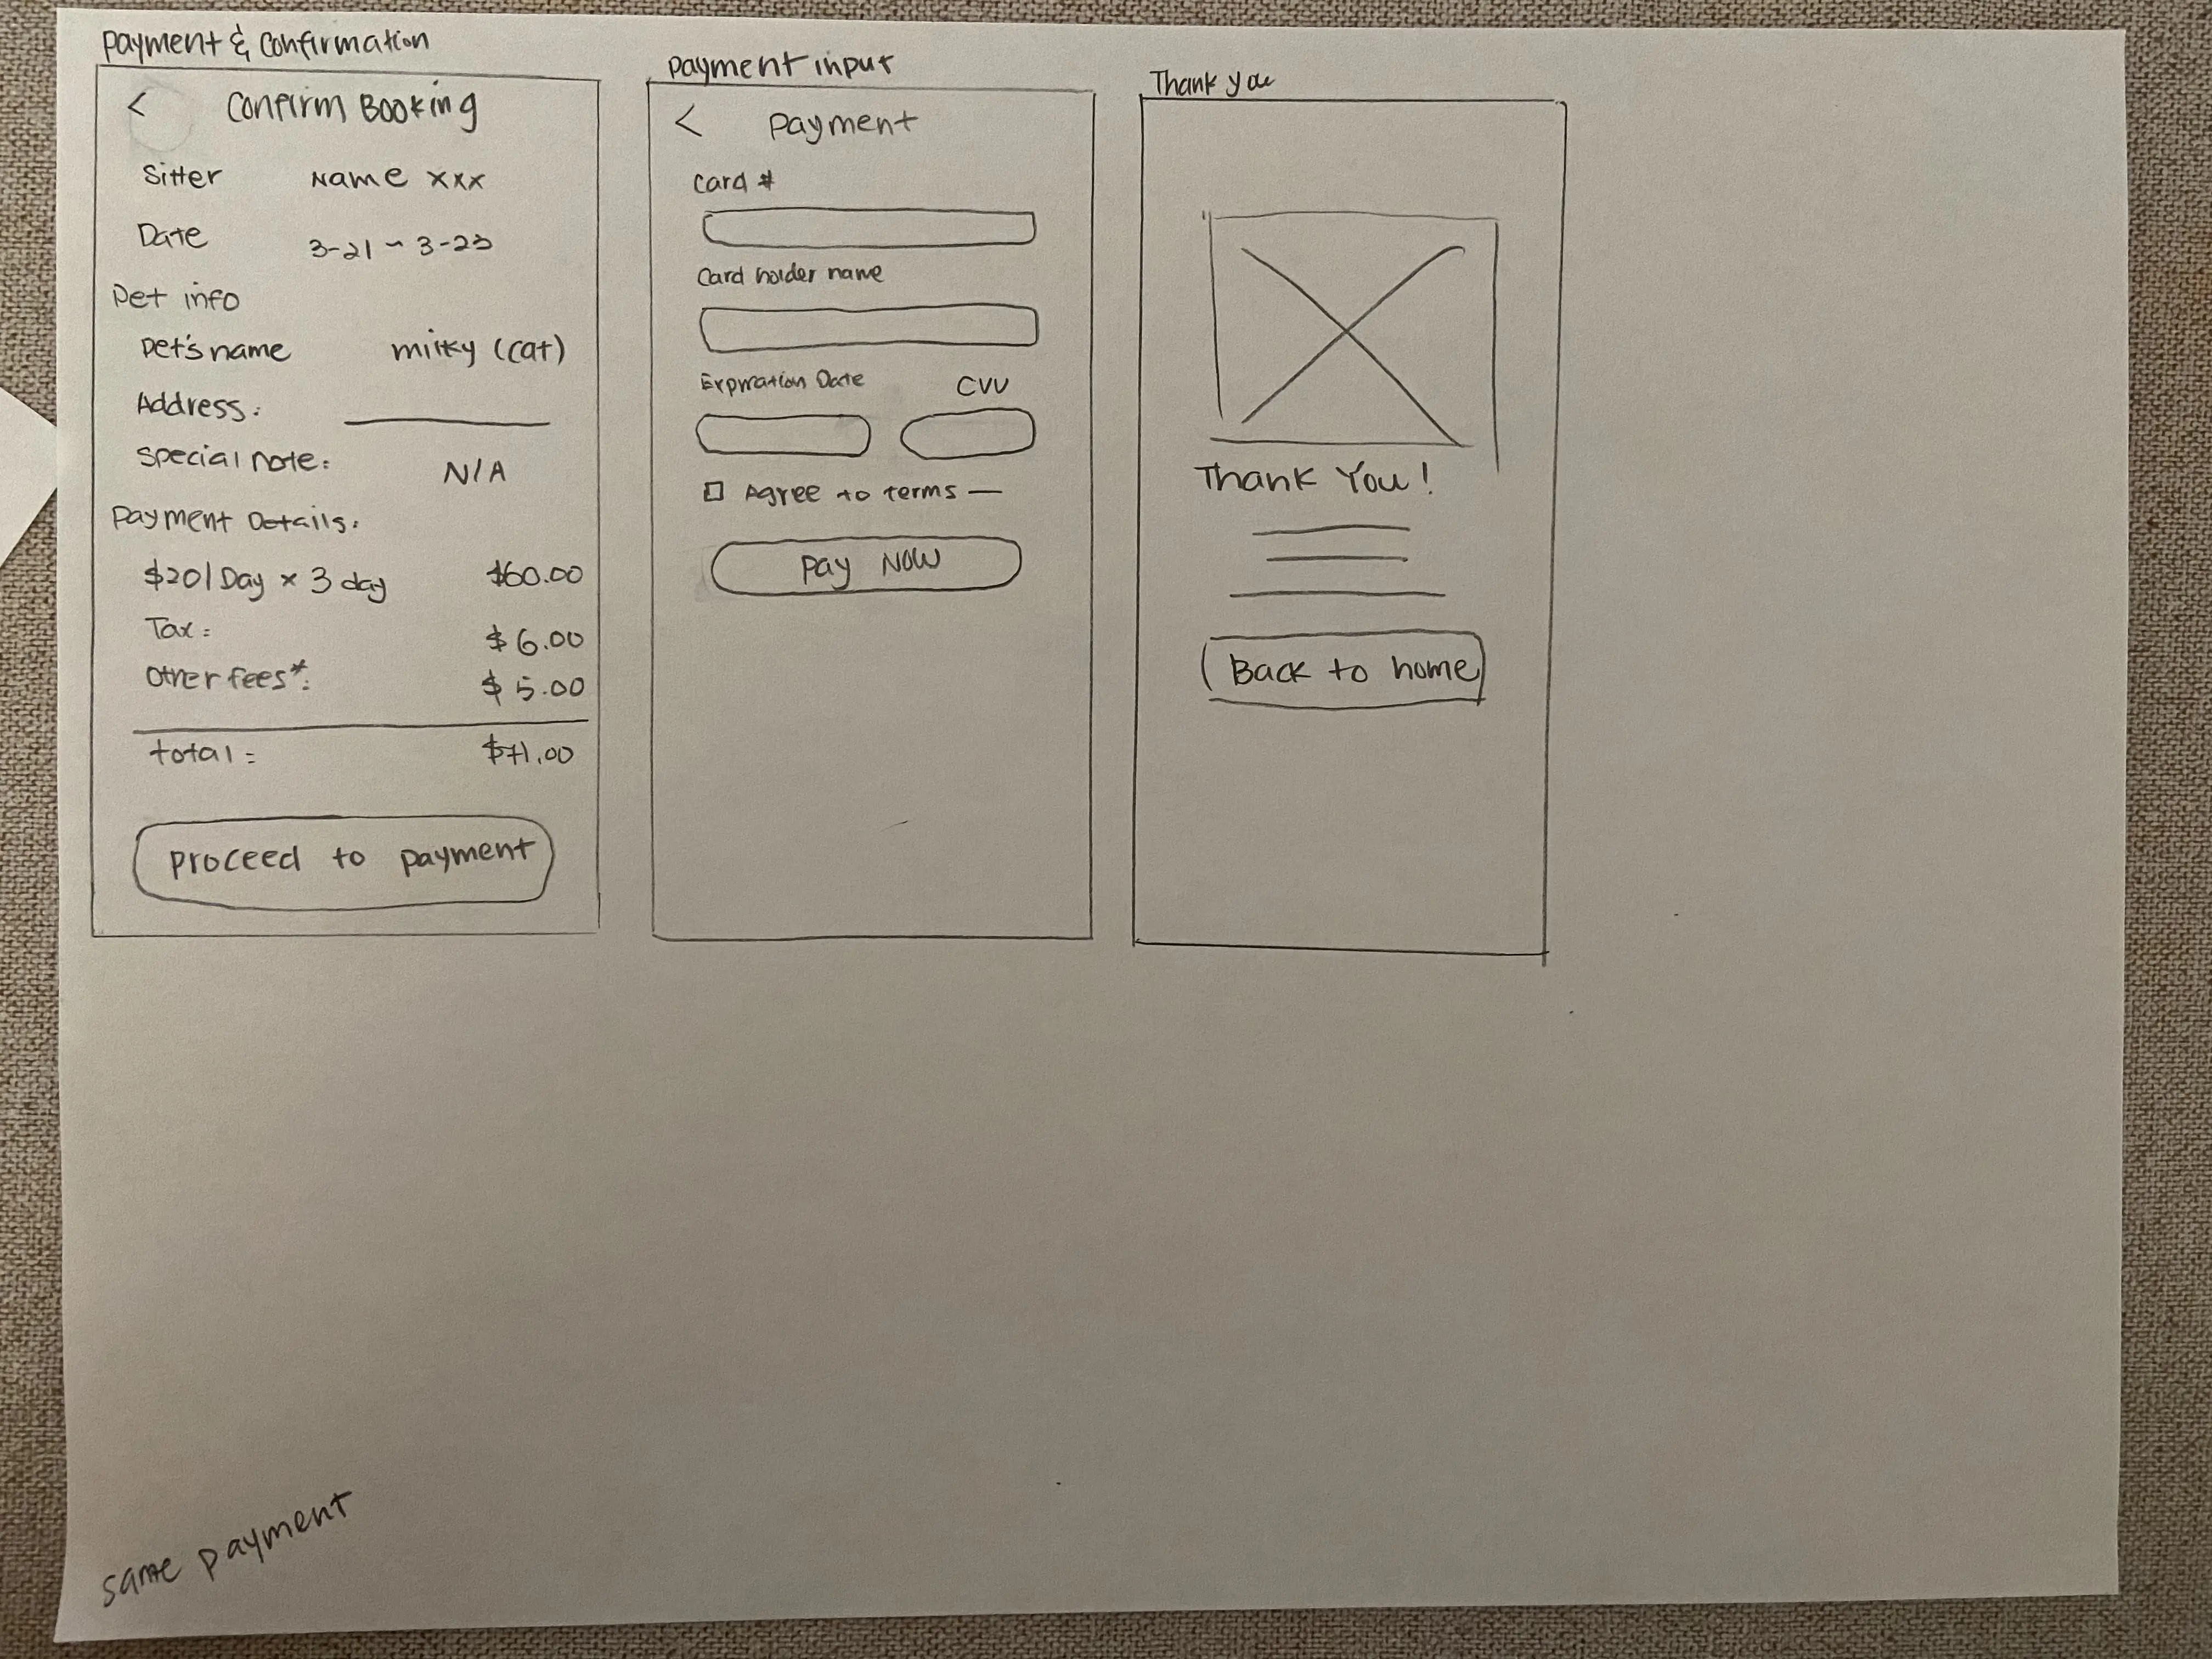 Payment & Confirmation
< Confirm Booking
Sitter Name xxx
Date 3-21 ~ 3-23
Pet info
Pet's name milky (cat)
Address:
Special note: N/A
Payment Details:
$20/Day × 3 day $60.00
Tax: $6.00
Other fees*: $5.00
total: $71.00
Proceed to payment
Payment input
< Payment
Card #
Card holder name
Expiration Date CVV
Agree to terms —
Pay Now
Thank you
Thank You!
Back to home
same payment